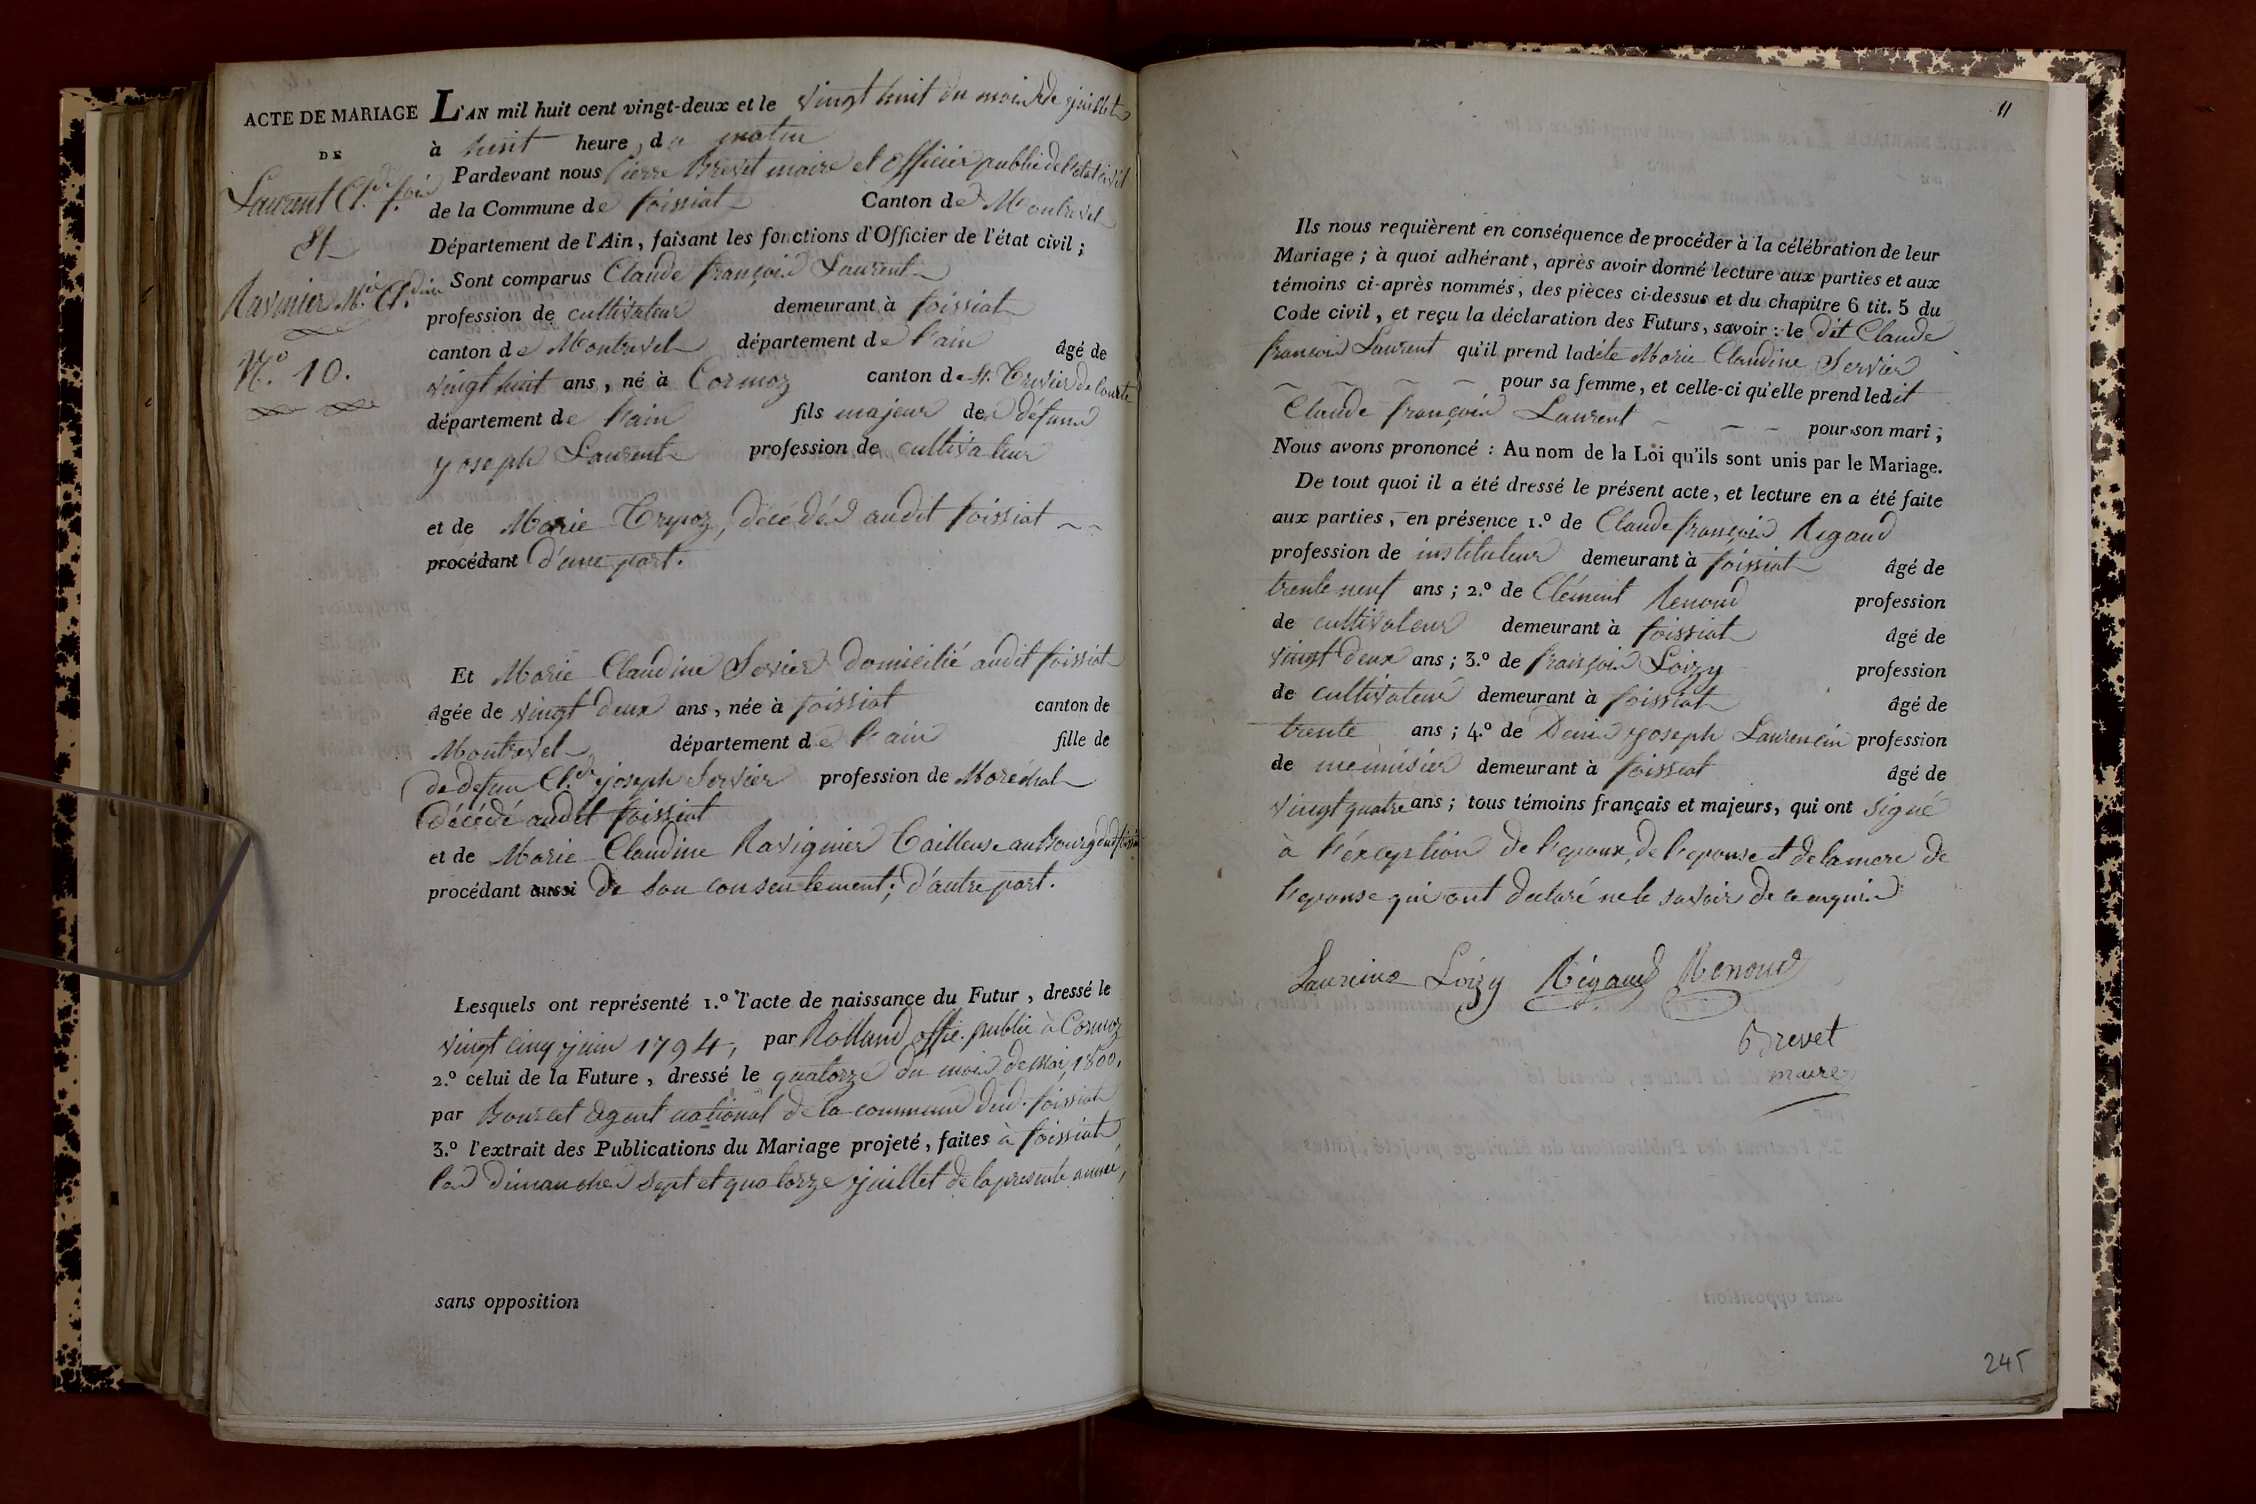 ACTE DE MARIAGE
DE
Laurent Cl.de f.ois
Et
Ravinier M.ie Cl.dine
N.o 10.
L'AN mil huit cent vingt-deux et le vingt huit du mois de juillet
à huit heure, du matin
Pardevant nous Pierre Brevet maire et Officier public de l'état civil
de la Commune de foissiat Canton de Montrevel
Département de l'Ain, faisant les fonctions d'Officier de l'état civil;
Sont comparus Claude françois Laurent
profession de cultivateur demeurant à foissiat
canton de Montrevel département de l'ain âgé de
vingt huit ans, né à Cormoz canton de St. Trivier de Courte
département de l'ain fils majeur de défuns
Joseph Laurent profession de cultivateur
et de Marie Crepoz, décédés audit foissiat
procédant d'une part.
Et Marie Claudine Servier domicilié audit foissiat
âgée de vingt deux ans, née à foissiat canton de
Montrevel département de l'ain fille de
de defun Cl.de joseph Servier profession de Maréchal
décédé audit foissiat
et de Marie Claudine Ravignier Tailleuse au Bourg dud. foissiat
procédant aussi de son consentement; d'autre part.
Lesquels ont représenté 1.o l'acte de naissance du Futur, dressé le
vingt cinq juin 1794, par Rolland offic. public à Cormoz
2.o celui de la Future, dressé le quatorze du mois de mai, 1800,
par Bourcet agent national de la commune dud. foissiat
3.o l'extrait des Publications du Mariage projeté, faites à foissiat
les dimanches sept et quatorze juillet de la presente année,
sans opposition
11
Ils nous requièrent en conséquence de procéder à la célébration de leur
Mariage; à quoi adhérant, après avoir donné lecture aux parties et aux
témoins ci-après nommés, des pièces ci-dessus et du chapitre 6 tit. 5 du
Code civil, et reçu la déclaration des Futurs, savoir: le dit Claude
françois Laurent qu'il prend ladite Marie Claudine Servier
pour sa femme, et celle-ci qu'elle prend ledit
Claude françois Laurent pour son mari;
Nous avons prononcé: Au nom de la Loi qu'ils sont unis par le Mariage.
De tout quoi il a été dressé le présent acte, et lecture en a été faite
aux parties, en présence 1.o de Claude françois Rigaud
profession de instituteur demeurant à foissiat âgé de
trente neuf ans; 2.o de Clément Renoud profession
de cultivateur demeurant à foissiat âgé de
vingt deux ans; 3.o de françois Loizy profession
de cultivateur demeurant à foissiat âgé de
trente ans; 4.o de Denis joseph Laurencin profession
de menuisier demeurant à foissiat âgé de
vingt quatre ans; tous témoins français et majeurs, qui ont signé
à l'éxception de l'epoux, de l'epouse et de la mere de
l'epouse qui ont declaré ne le savoir de ce enquis
Laurcinz Loizy Rigaud Renoud
Brevet
maire
245